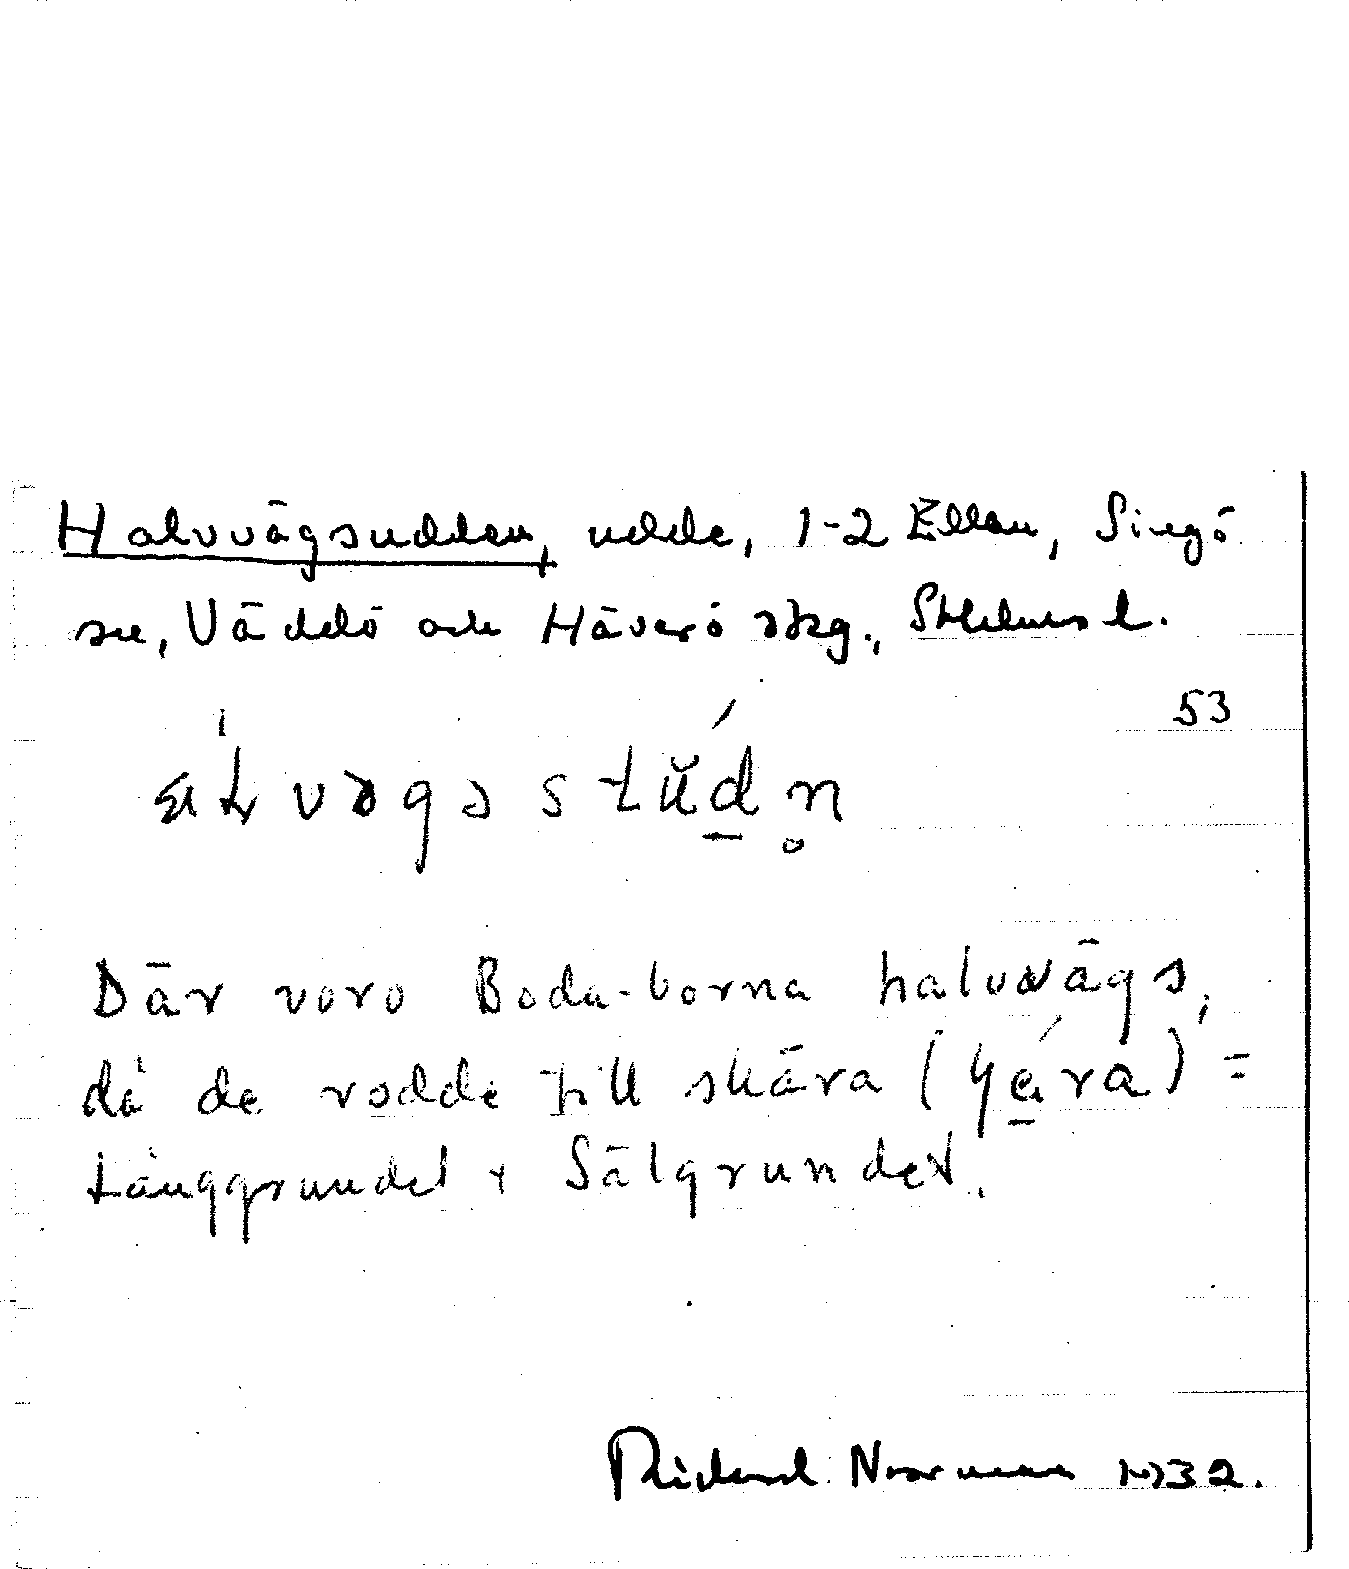 Halvvägsudden, udde, 1-2 Ellan, Singö
sn, Väddö och Häverö skg., Sthlms l.
53
Där voro Boda-borna halvvägs,
då de rodde till skära =
Långgrundet + Sälgrundet.
Rickard Norrman 1932.